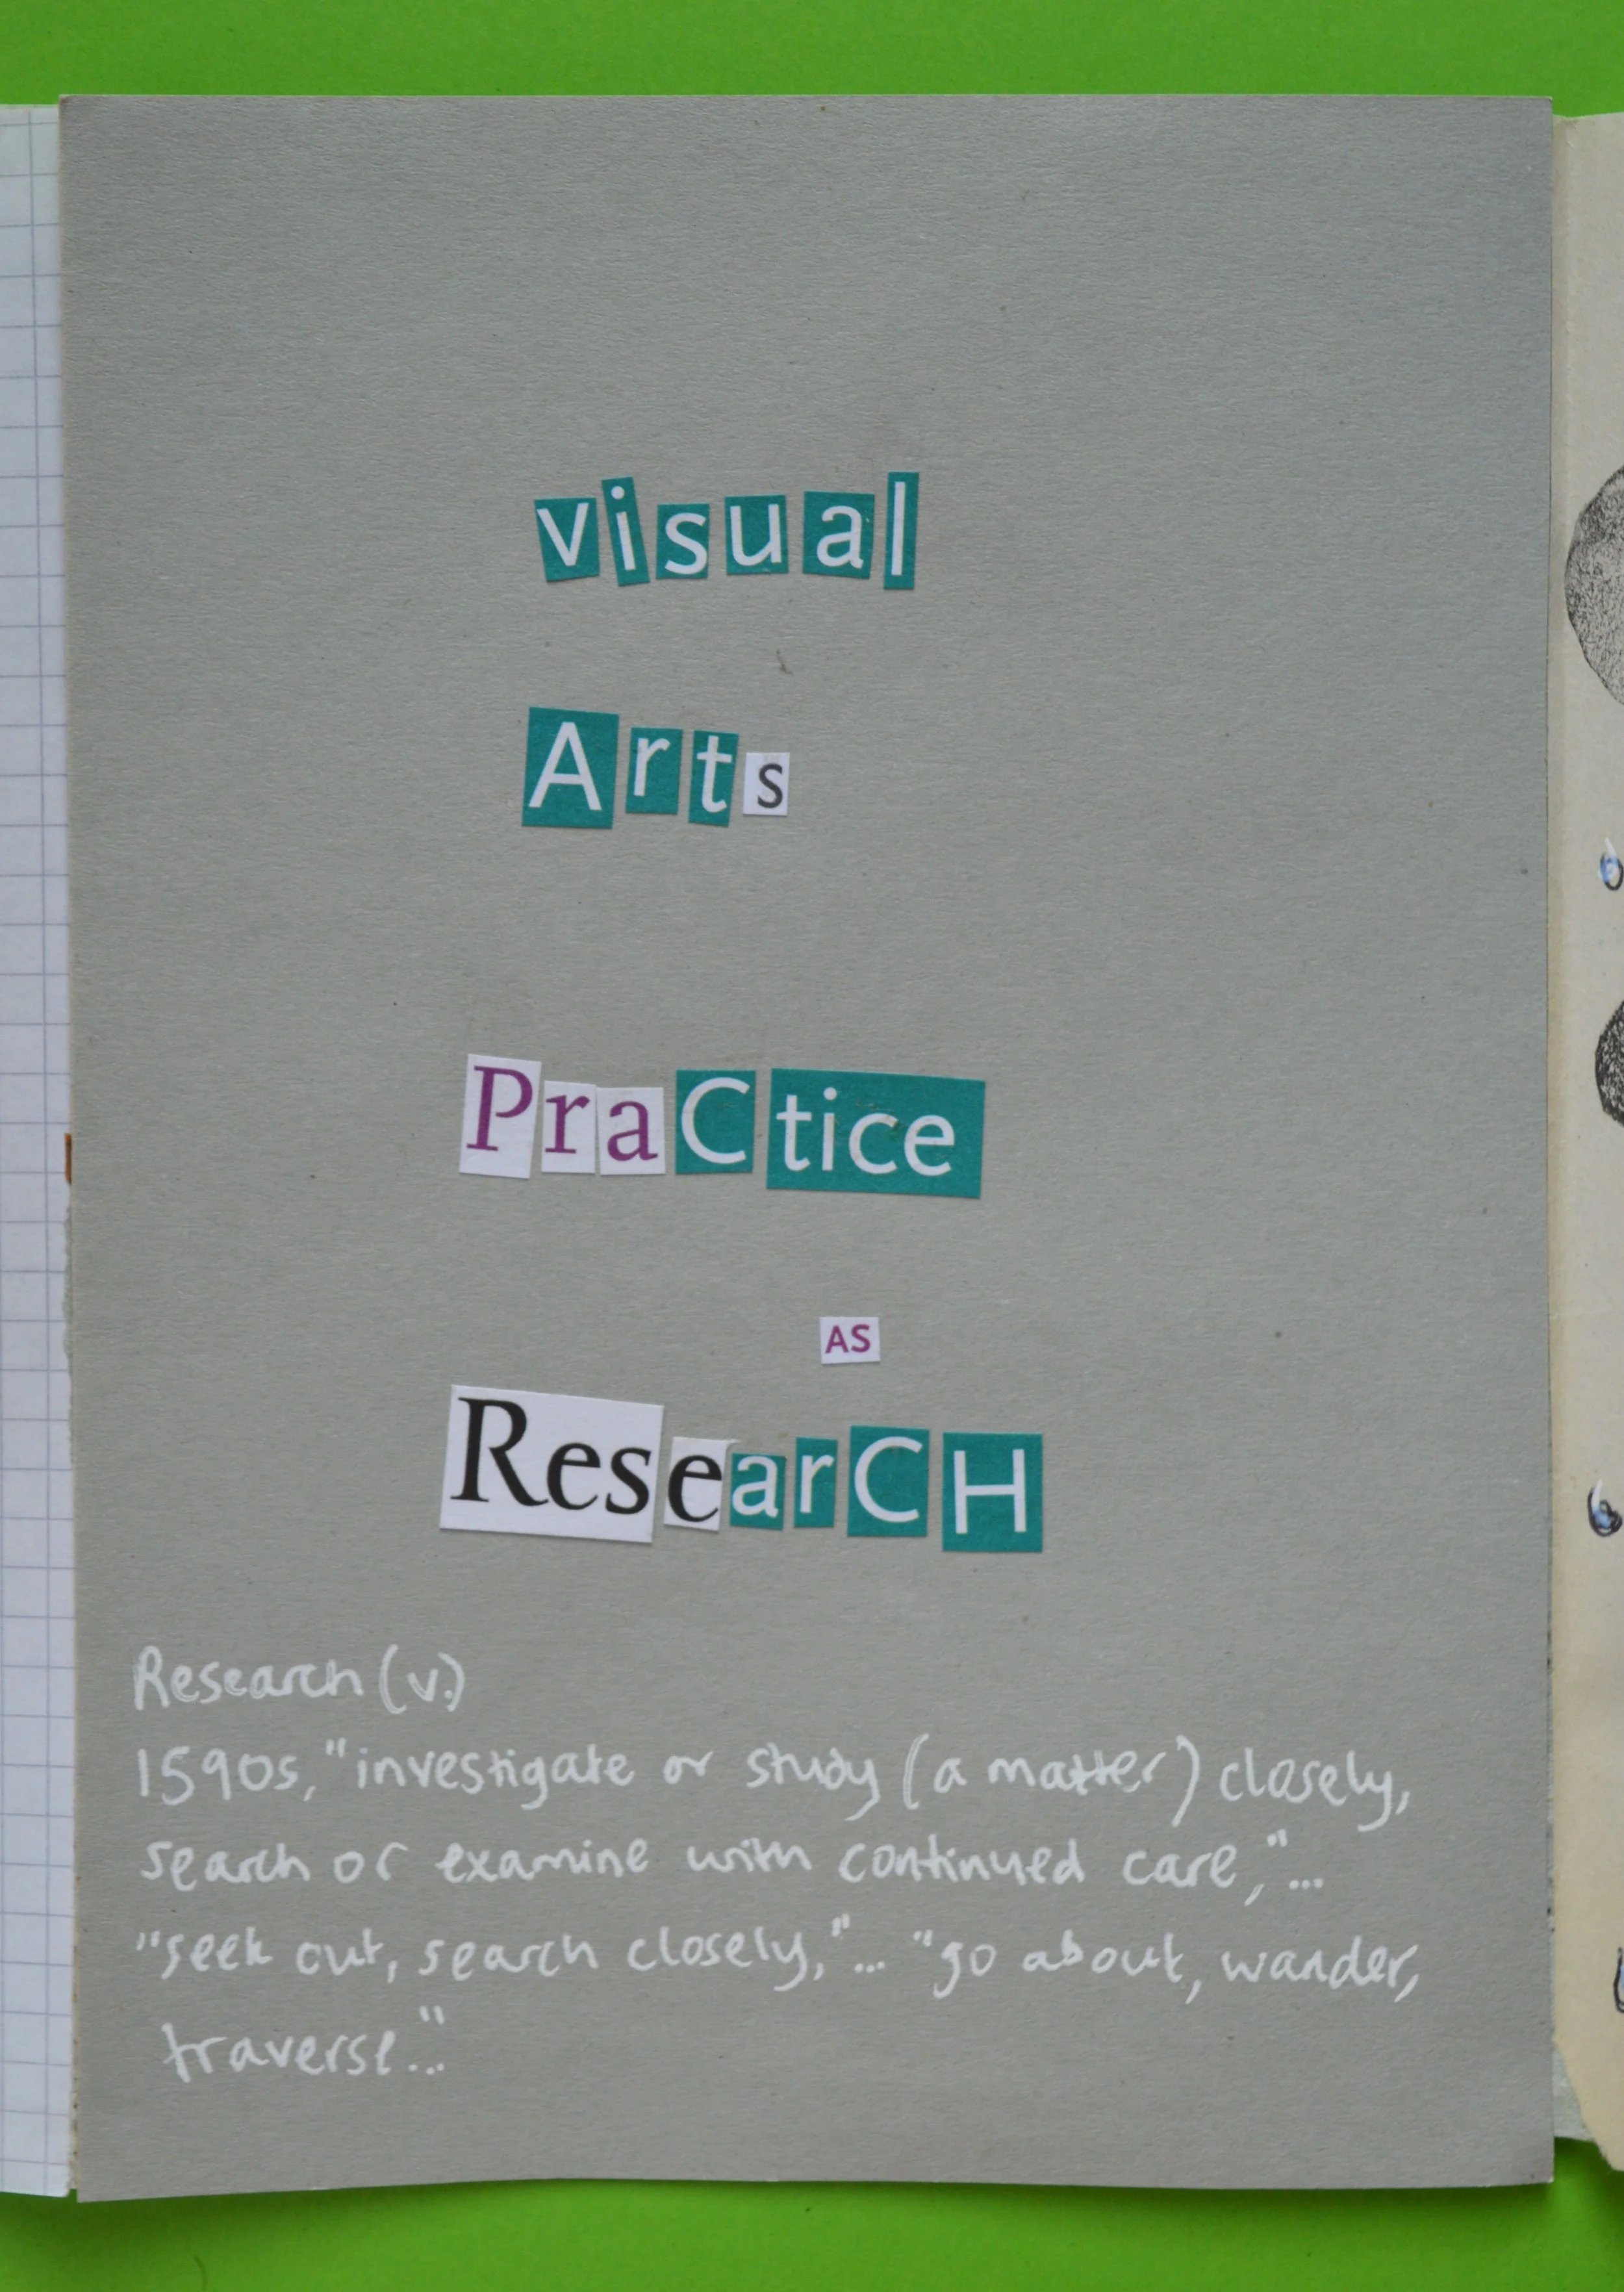 visual
Arts
PraCtice
AS
ResearCH
Research (v.)
1590s, "investigate or study (a matter) closely,
search or examine with continued care,"...
"seek out, search closely,"... "go about, wander,
traverse..."